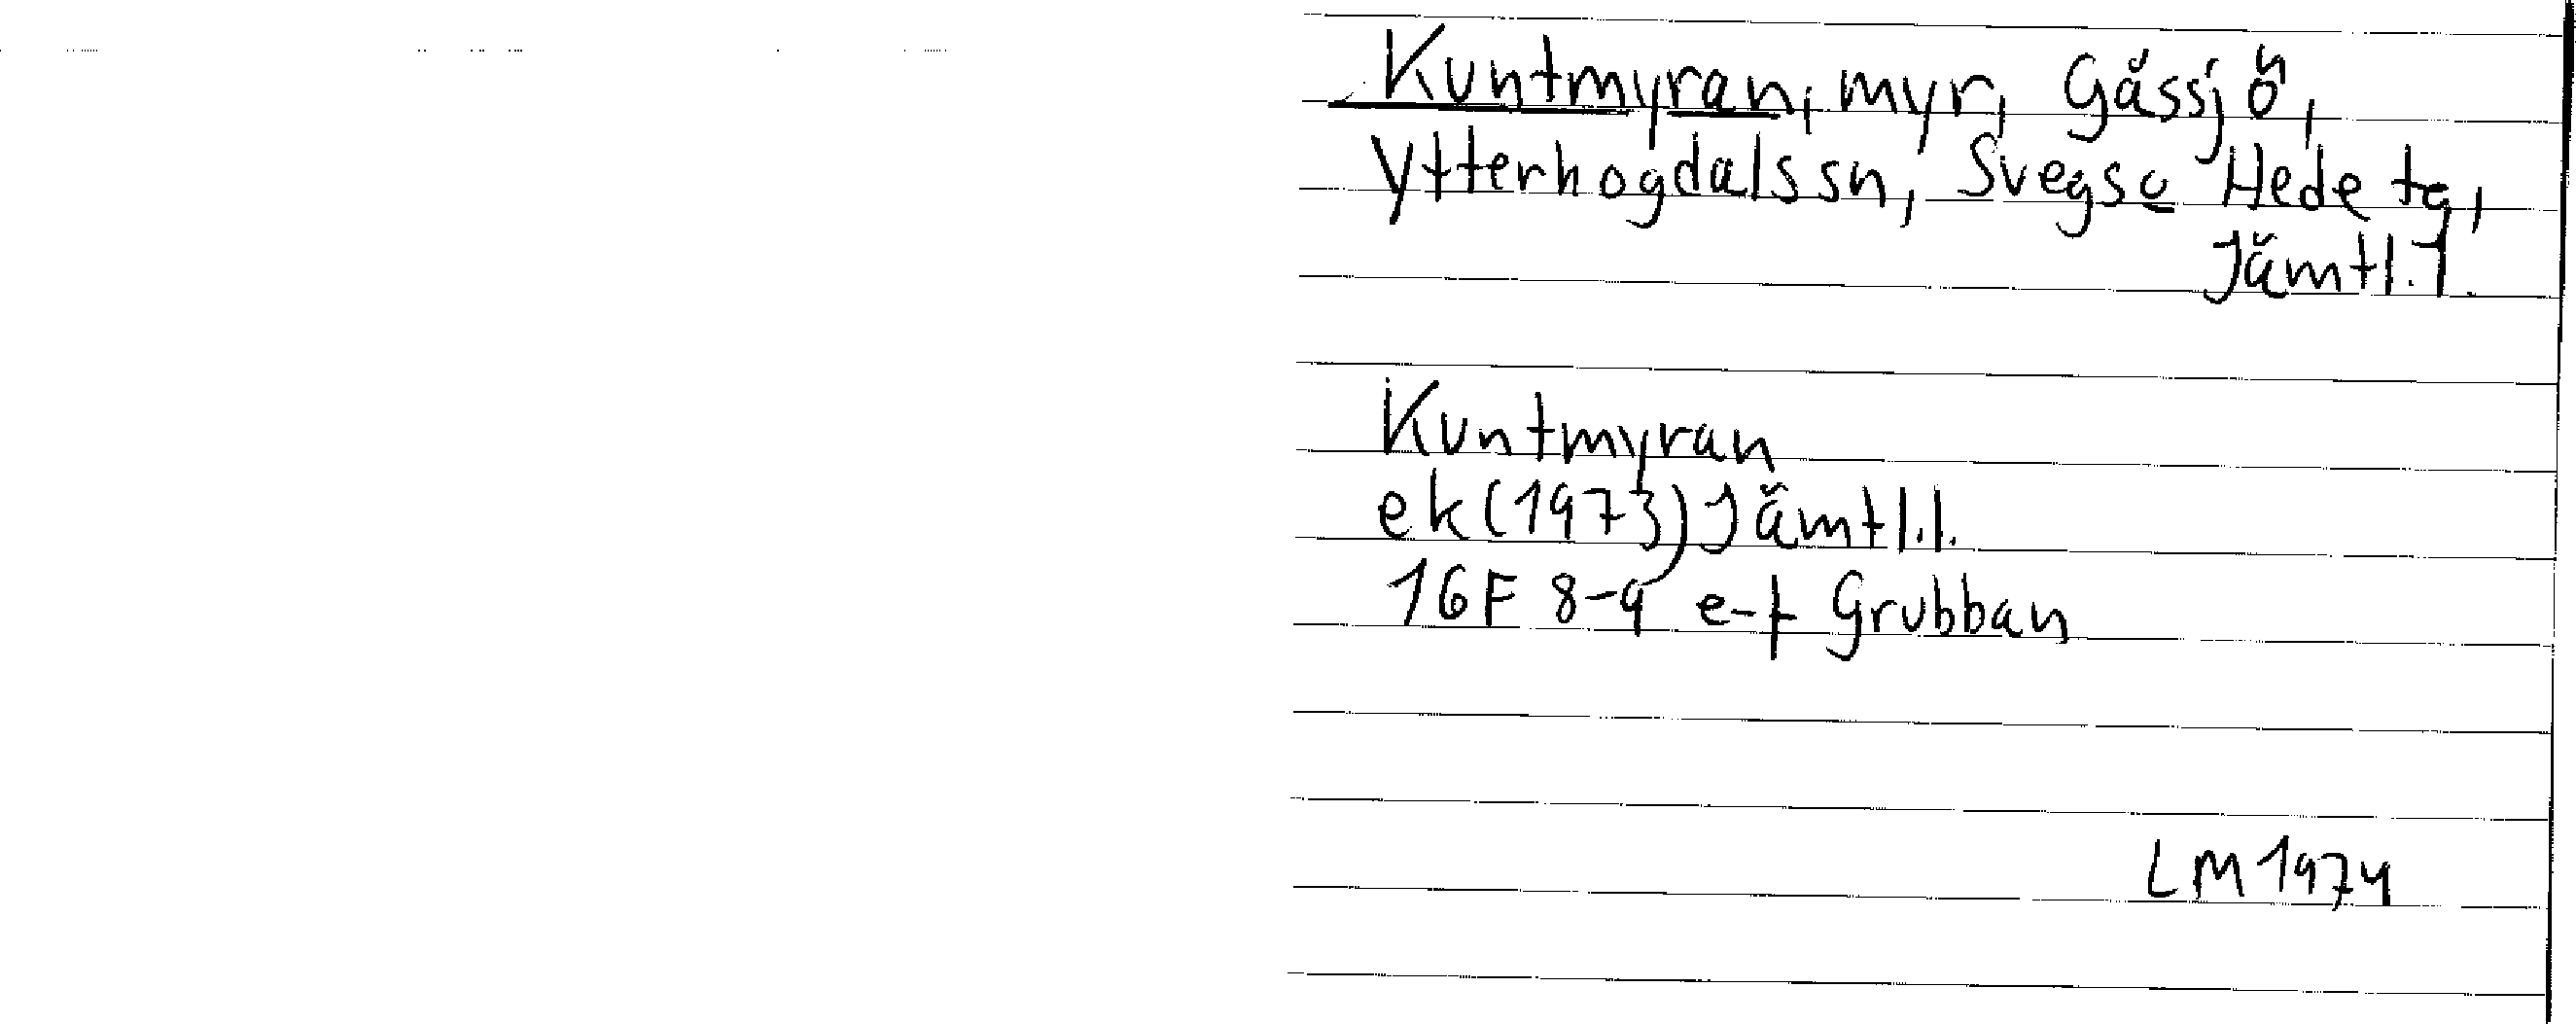 Kuntmyran, myr, Gässjö,
Ytterhogdals sn, Svegs o Hede tg,
Jämtl. l.
Kuntmyran
ek (1973) Jämtl. l.
16F 8-9 e-f Grubban
LM 1974